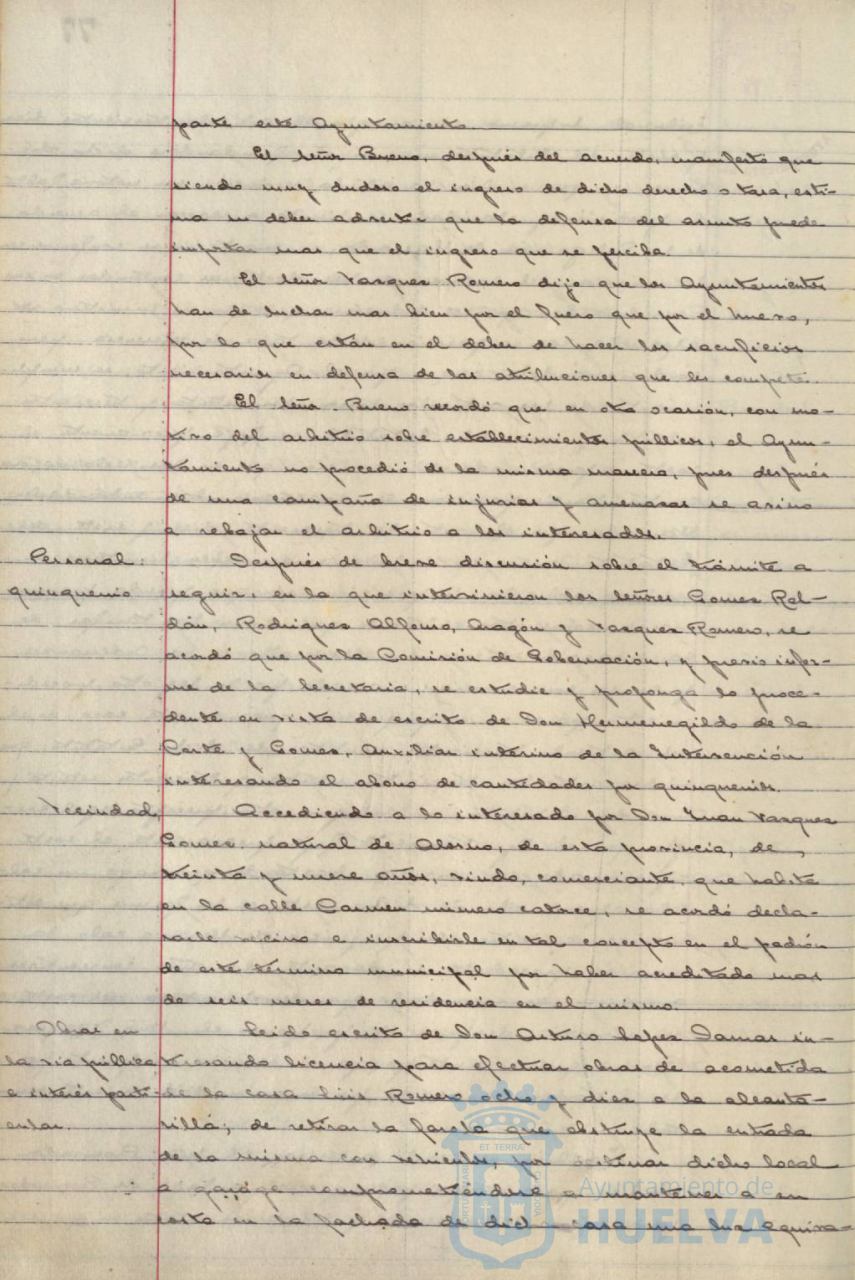 parte este Ayuntamiento.
El señor Bueno, después del acuerdo, manifestó que
siendo muy dudoso el ingreso de dicho derecho o tasa, esti-
ma su deber advertir que la defensa del asunto puede
importar mas que el ingreso que se perciba.
El señor Vazquez Romero dijo que los Ayuntamientos
han de luchar mas bien por el fuero que por el huevo,
por lo que están en el deber de hacer los sacrificios
necesarios en defensa de las atribuciones que les compete.
El señor Bueno recordó que en otra ocasión, con mo-
tivo del arbitrio sobre establecimientos públicos, el Ayun-
tamiento no procedió de la misma manera, pues después
de una campaña de injurias y amenazas se avino
a rebajar el arbitrio a los interesados.
Personal:
quinquenio
Después de breve discusión sobre el trámite a
seguir, en la que intervinieron los señores Gomez Rol-
dán, Rodriguez Alfonso, Aragón y Vazquez Romero, se
acordó que por la Comisión de Gobernación, y previo infor-
me de la Secretaria, se estudie y proponga lo proce-
dente en vista de escrito de Don Hermenegildo de la
Corte y Gomez, Auxiliar interino de la Intervención
interesando el abono de cantidades por quinquenios.
Vecindad
Accediendo a lo interesado por Don Juan Vazquez
Gomez, natural de Alosno, de esta provincia, de
treinta y nueve años, viudo, comerciante, que habita
en la calle Carmen número catorce, se acordó decla-
rarle vecino e inscribirle en tal concepto en el padrón
de este término municipal por haber acreditado mas
de seis meses de residencia en el mismo.
Obras en
la via pública
e interés parti-
cular.
Leido escrito de Don Arturo Lopez Damas in-
teresando licencia para efectuar obras de acometida
de la casa Luis Romero ocho y diez a la alcanta-
rilla; de retirar la farola que obstruye la entrada
de la misma con vehículos, por destinar dicho local
a garage, comprometiéndose a mantener a su
costa en la fachada de dicha casa una luz equiva-
ET TERRÆ
Ayuntamiento de
HUELVA